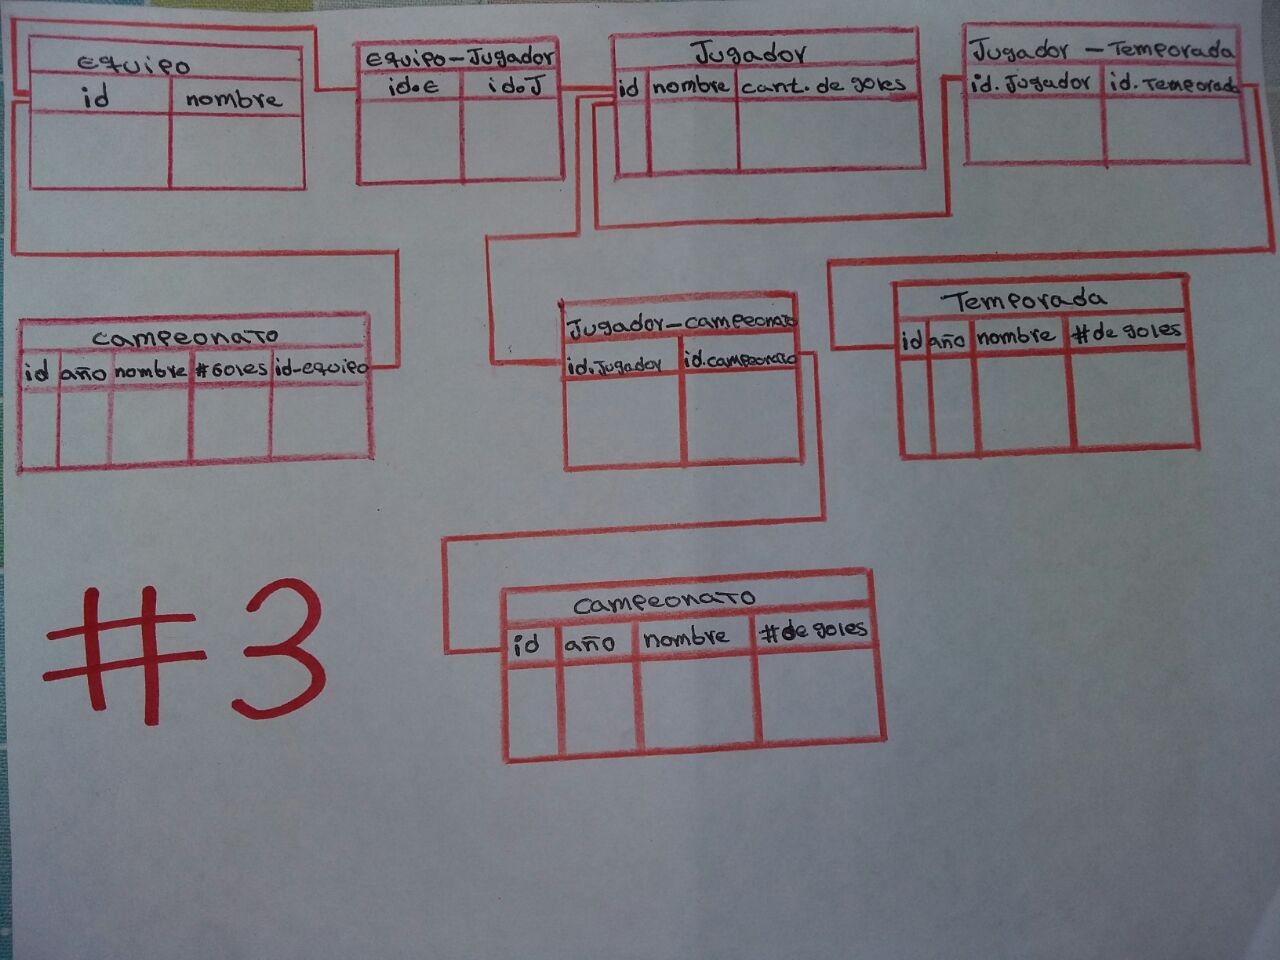 equipo
id nombre
equipo-Jugador
id.e id.J
Jugador
id nombre cant. de goles
Jugador - Temporada
id. Jugador id. Temporada
campeonato
id año nombre #Goles id-equipo
Jugador-campeonato
id. Jugador id.campeonato
Temporada
id año nombre # de goles
#3
campeonato
id año nombre # de goles